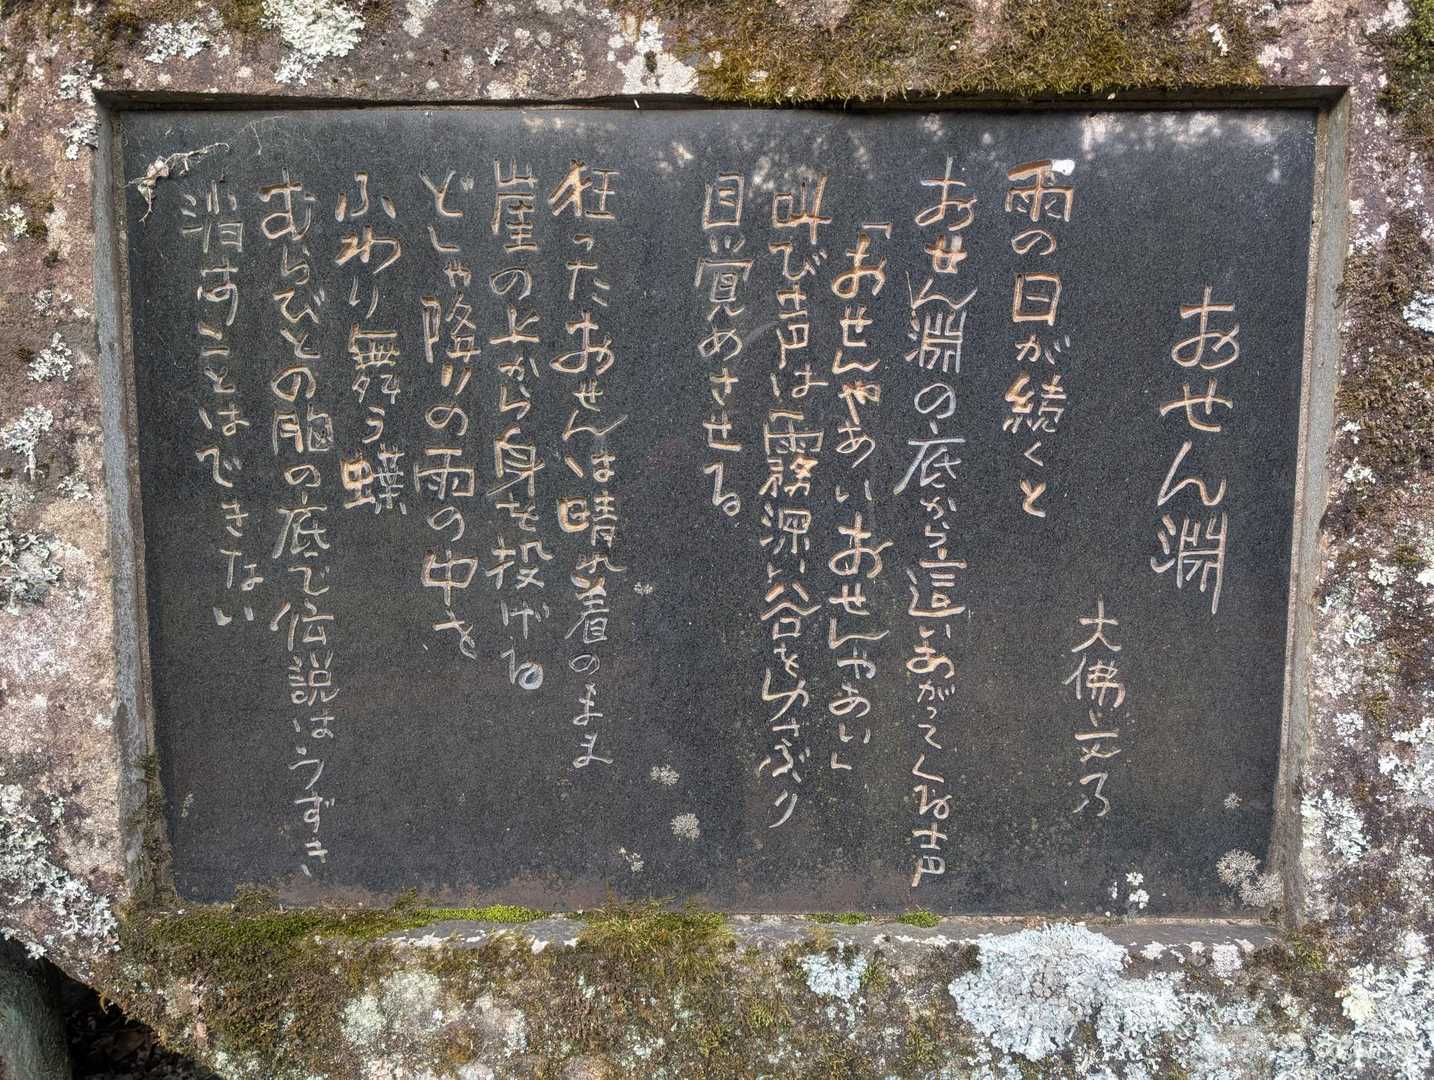 おせん淵
大佛文乃
雨の日が続くと
おせん淵の底から這いあがってくる声
「おせんやあいおせんやあい」
叫び声は霧深い谷をゆさぶり
目覚めさせる
狂ったおせんは晴れ着のまま
崖の上から身を投げる
どしゃ降りの雨の中を
ふわり舞う蝶
むらびとの胸の底で伝説はうずき
消すことはできない